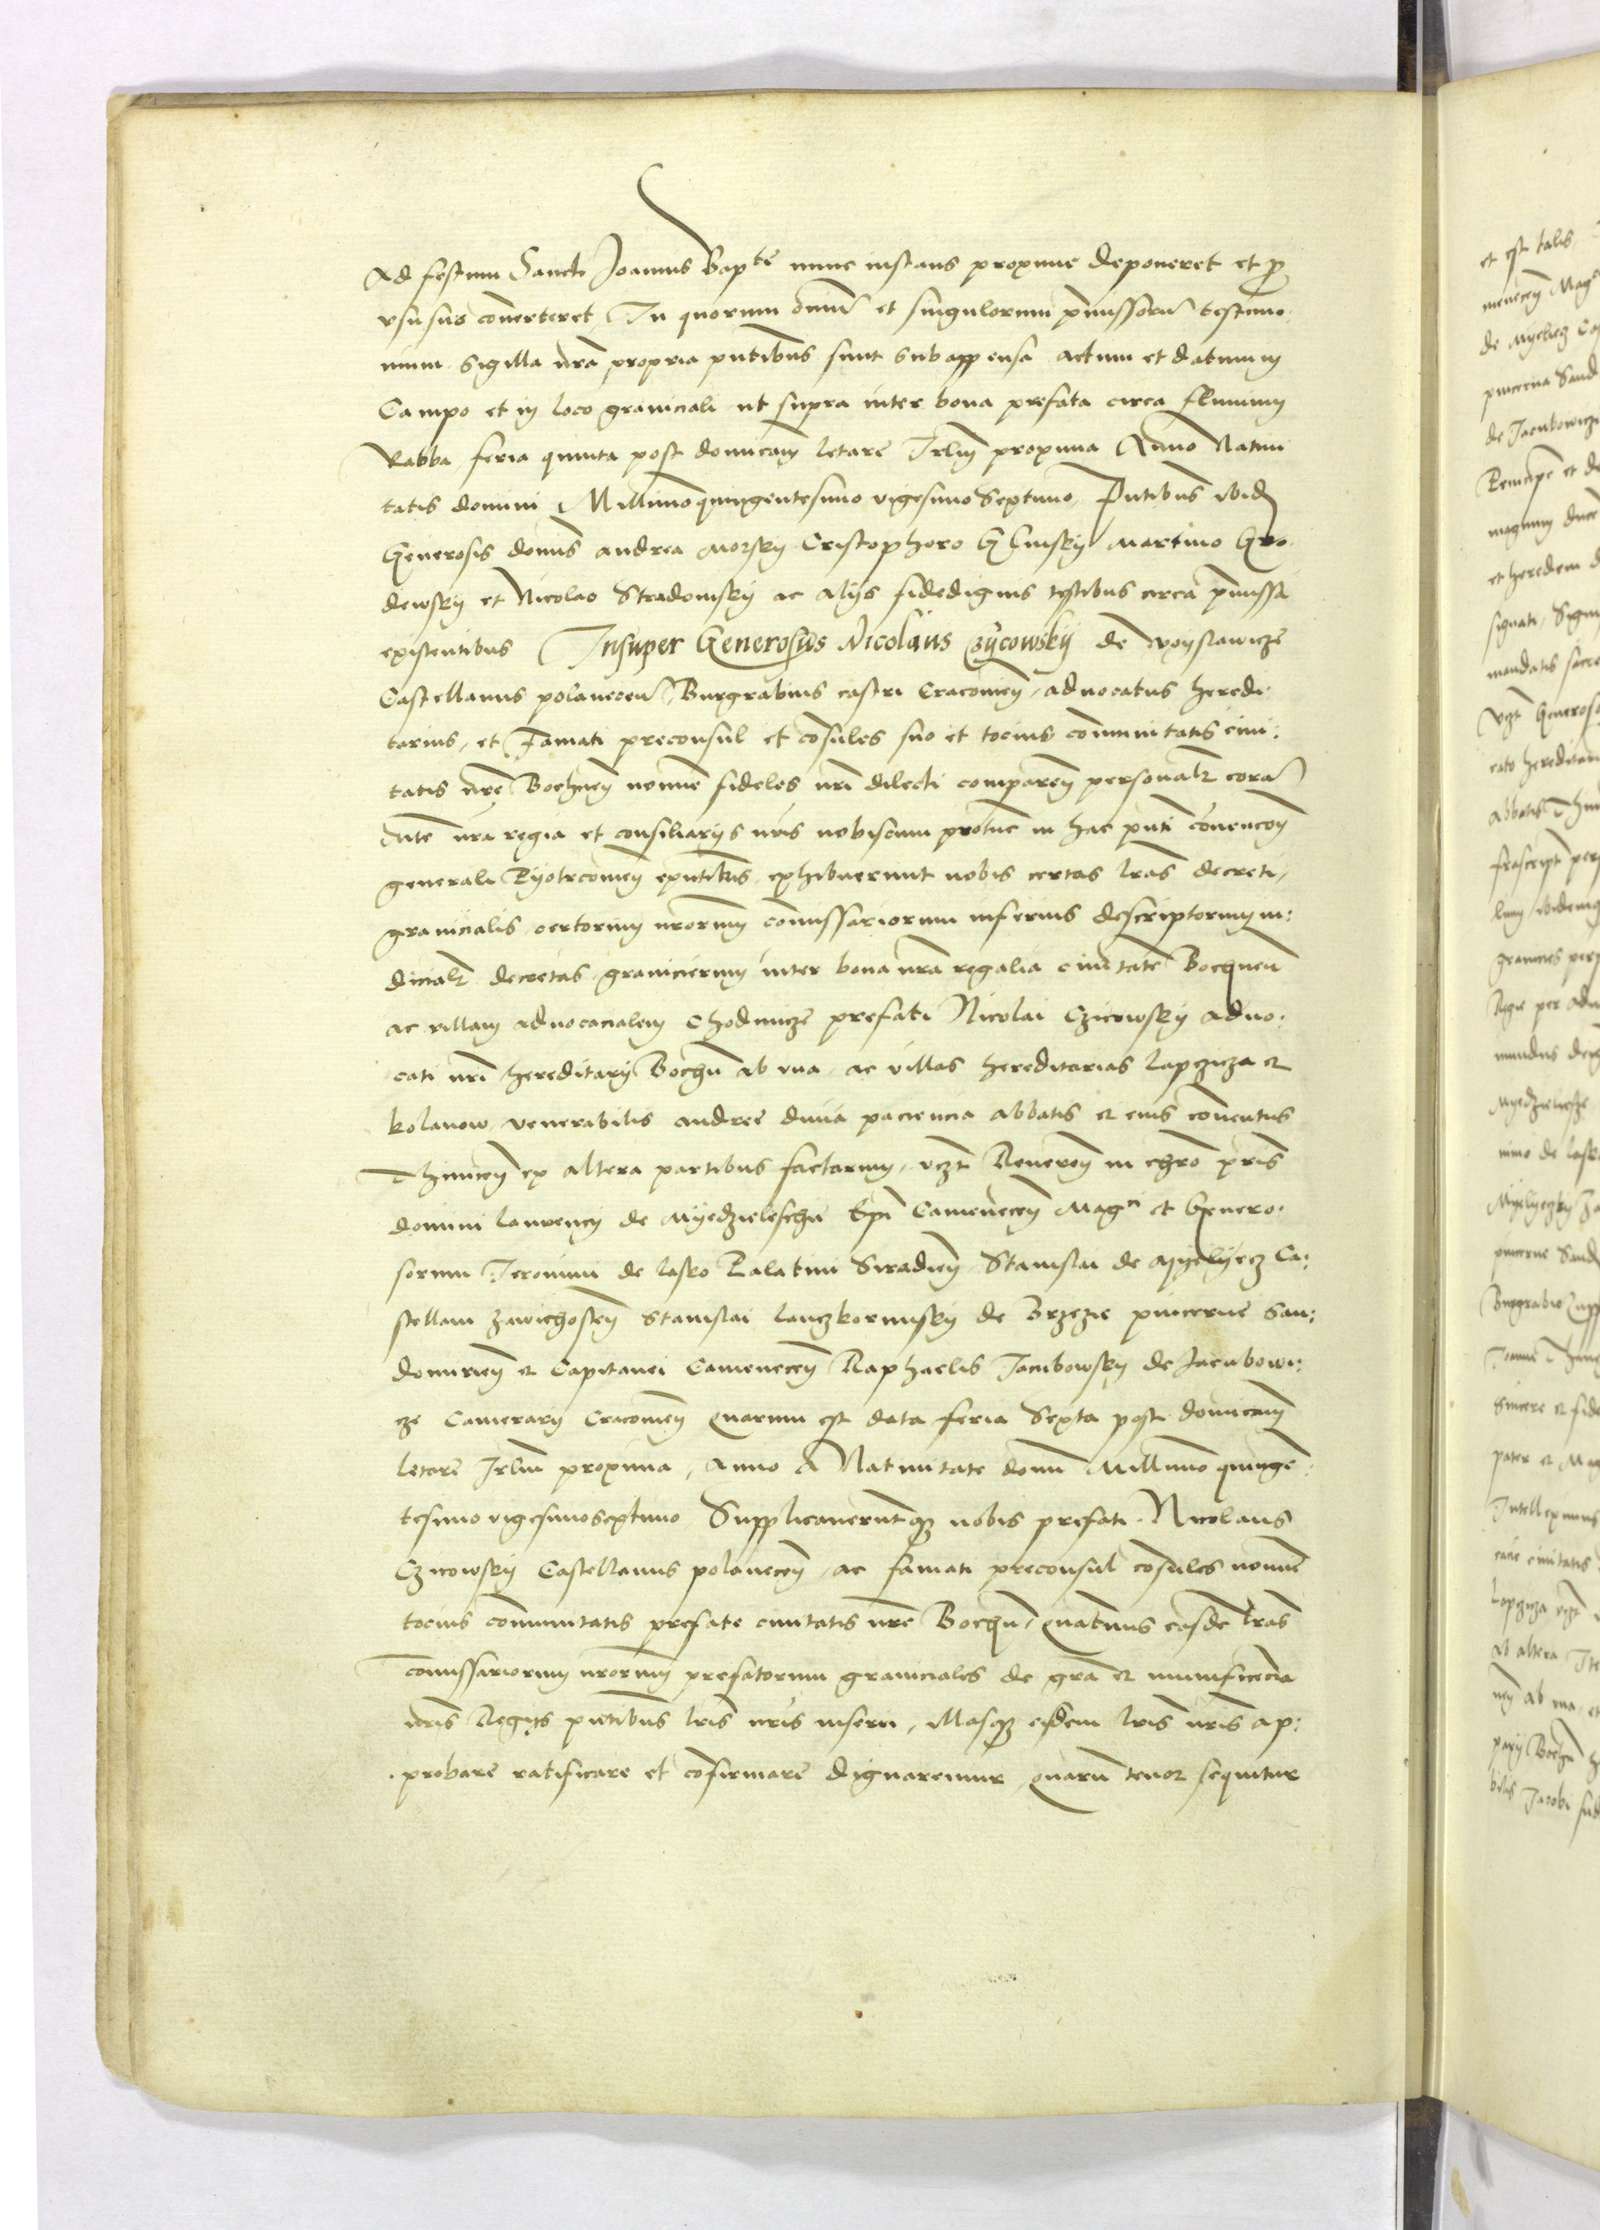 Ad festum Sancti Joannis Bap^te nunc instans proxime deponeret et p
vsu suo cōnerteret, In quorum oīnū et singulorum p̄missorū testimo
nium sigilla n̄ra propria pn̄tibus sunt subappensa Actum et datum in
Campo et in loco graniciali ut supra inter bona prefata circa fluuium
Rabba feria quinta post dominicam letare Jrlm̄ proxima Anno Natiui
tatis domini Millimoquingentesimo vigesimo Septimo, Pn̄tibus ibid
Generosis domīs andrea morsky Cristophoro Glinsky Martino Gro
dewsky et Nicolao Stradomsky ac alijs fidedignis testibus circa p̄missa
existentibus Insuper Generosus Nicolaus Czycowsky de Woyslawicze
Castellanus polanecen̄ Burgrabius castri Cracouien̄, aduocatus heredi:
tarius, et Famati preconsul et cōsules suo et tocius cōmunitatis ciui:
tatis n̄re Bochnen̄ nomine fideles n̄ri dilecti comparen̄ personalr̄ corā
mte n̄ra regia et consiliarijs n̄ris nobiscum protūc in hac pn̄ti cōuencōe
generali Pyotrcouien̄ exn̄tibus, exhibuerunt nobis certas lr̄as decreti,
granicialis certorum n̄rorum cōmissariorum inferius descriptorum iu:
dicialr̄ decretas, granicierum inter bona n̄ra regalia ciuitatē Bochnen̄
ac villam aduocacialem Chodenicze prefati Nicolai Czicowsky aduo:
cati n̄ri hereditarij Bochn̄ ab vna, ac villas hereditarias lapczicza et
kolanow, venerabilis andree diuina paciencia abbatis et eius cōuentus
Thinicen̄ ex altera partibus factarum, vcz̄t Reueren̄ in chrō pris
domini laurencij de Myedzieleschn̄ Epī Camenecen̄ Mag^ci et Genero:
sorum Jeronimi de lasko Palatini Siradien̄ Stanislai de Myelyecz Ca:
stellani zawichosten̄ Stanislai lanczkorunsky de Brzezie pincerne San:
domirien̄ et Capitanei Camenecen̄ Raphaelis Jacubowsky de Jacubowi:
cze Camerarij Cracouien̄ quarum est data feria Sexta post dominicam
letare Jrlm̄ proxima, Anno A Natiuitate domī Millimo quingē:
tesimo vigesimoseptimo Supplicaueruntq nobis prefati Nicolaus
Czicowsky Castellanus polanecen̄, ac famati preconsul cōsules nomine
tocius cōmunitatis prefate ciuitatis n̄re Bochn̄, quatenus easdē lr̄as
cōmissariorum n̄rorum prefatorum graniciales de gra et munificēcia
n̄ris Regijs pn̄tibus lr̄is n̄ris inseri, illasq eisdem lr̄is n̄ris ap:
probare ratificare et cōfirmare dignaremur, quarū tenor sequitur